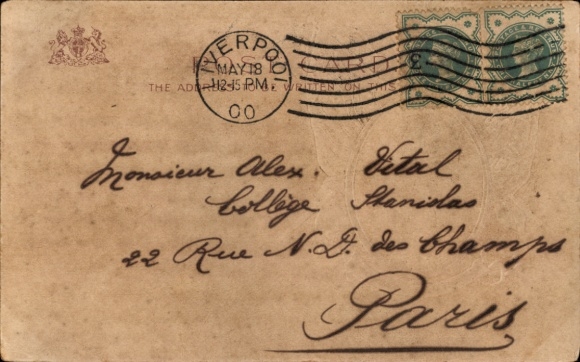 POST CARD
THE ADDRESS TO BE WRITTEN ON THIS
LIVERPOOL
MAY 18
12-15 PM
00
3
Monsieur Alex. Vital
Collège Stanislas
22 Rue N. D. des Champs
Paris